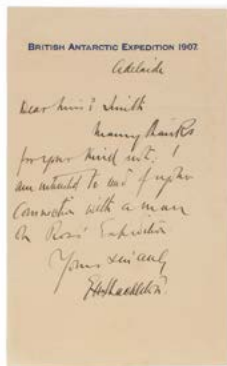 BRITISH ANTARCTIC EXPEDITION 1907.
Adelaide
Dear Smith
Many thanks
for your kind note. I
am to
Connection with a man
on Ross' Expedition
Yours sincerely
EHShackleton